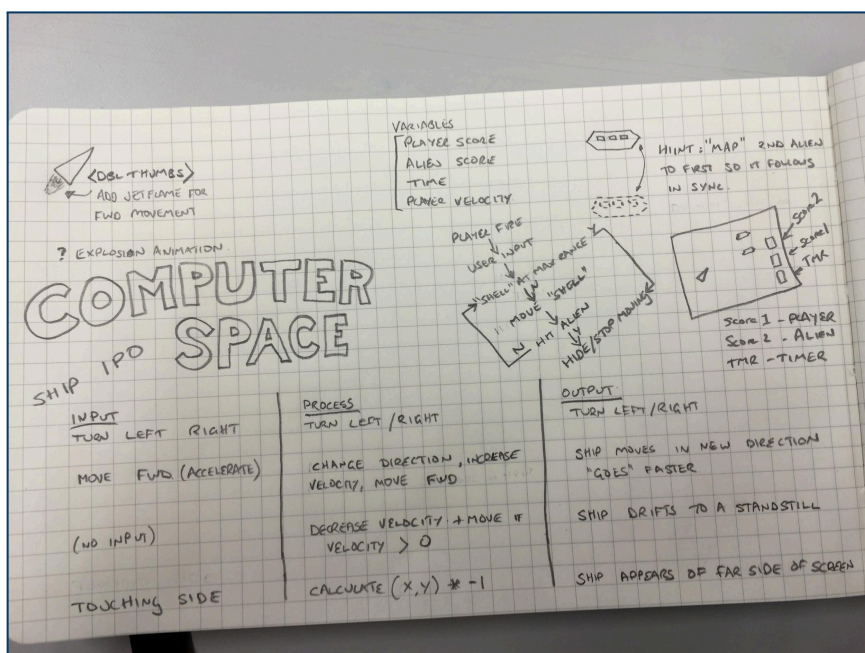 <DBL THUMBS>
ADD JETFLAME FOR
FWD MOVEMENT
? EXPLOSION ANIMATION
VARIABLES
PLAYER SCORE
ALIEN SCORE
TIME
PLAYER VELOCITY
HIINT: "MAP" 2ND ALIEN
TO FIRST SO IT FOLLOWS
IN SYNC.
PLAYER FIRE
USER INPUT
"SHELL" AT MAX RANGE Y
N
MOVE "SHELL"
HIT ALIEN
N Y
HIDE/STOP MOVING
Score 2
Score 1
TMR
Score 1 - PLAYER
Score 2 - ALIEN
TMR - TIMER
COMPUTER
SPACE
SHIP IPO
INPUT
TURN LEFT RIGHT
MOVE FWD (ACCELERATE)
(NO INPUT)
TOUCHING SIDE
PROCESS
TURN LEFT/RIGHT
CHANGE DIRECTION, INCREASE
VELOCITY, MOVE FWD
DECREASE VELOCITY + MOVE IF
VELOCITY > 0
CALCULATE (X,Y) * -1
OUTPUT
TURN LEFT/RIGHT
SHIP MOVES IN NEW DIRECTION
"GOES" FASTER
SHIP DRIFTS TO A STANDSTILL
SHIP APPEARS OF FAR SIDE OF SCREEN